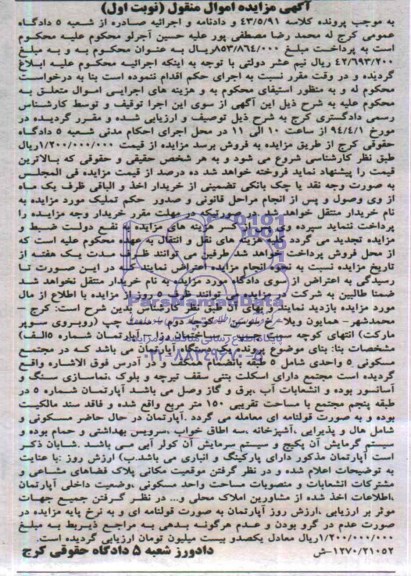 آگهی مزایده اموال منقول (نوبت اول)
به موجب پرونده کلاسه ٤٣/٥/٩١ و دادنامه و اجرائیه صادره از شعبه ٥ دادگاه
عمومی کرج له محمد رضا مصطفی پور علیه حسین آجرلو محکوم علیه محکوم
است به پرداخت مبلغ ٨٥٣/٨٦٤/٠٠٠ریال به عنوان محکوم به و به مبلغ
٤٢/٦٩٣/٢٠٠ ریال نیم عشر دولتی با توجه به اینکه اجرائیه محکوم علیه ابلاغ
گردیده و در وقت مقرر نسبت به اجرای حکم اقدام ننموده است بنا به درخواست
محکوم له و به منظور استیفای محکوم به و هزینه های اجرایی اموال متعلق به
محکوم علیه به شرح ذیل این آگهی از سوی این اجرا توقیف و توسط کارشناس
رسمی دادگستری کرج به شرح ذیل توصیف و ارزیابی شده و مقرر گردیده در
مورخ ٩٤/٤/١ از ساعت ١٠ الی ١١ در محل اجرای احکام مدنی شعبه ٥ دادگاه
حقوقی کرج از طریق مزایده به فروش برسد مزایده از قیمت ١/٢٠٠/٠٠٠/٠٠٠ریال
طبق نظر کارشناسی شروع می شود و به هر شخص حقیقی و حقوقی که بالاترین
قیمت را پیشنهاد نماید فروخته خواهد شد ده درصد از قیمت مزایده فی المجلس
به صورت وجه نقد یا چک بانکی تضمینی از خریدار اخذ و الباقی ظرف یک ماه
از وی وصول و پس از انجام مراحل قانونی و صدور حکم تملیک مورد مزایده به
نام خریدار منتقل خواهد شد مهلت مقرر خریدار وجه مزایده را
پرداخت ننماید سپرده وی پس از کسر هزینه های مزایده به نفع دولت ضبط و
مزایده تجدید می گردد کلیه هزینه های نقل و انتقال به عهده محکوم علیه است که
از محل فروش پرداخت خواهد شد طرفین می توانند ظرف مدت یک هفته از
تاریخ مزایده نسبت به نحوه انجام مزایده اعتراض نمایند که در این صورت تا
رسیدگی به اعتراض از سوی دادگاه مورد مزایده به نام خریدار منتقل نخواهد شد
ضمنا طالبین به شرکت در مزایده می توانند مزایده با اطلاع از مال
مورد مزایده بازدید نمایند بهای آن طبق نظر کارشناس بدین شرح است: کرج -
محمدشهر - همایون ویلا - کوچه دوم سمت چپ (روبروی سوپر
مارکت) انتهای کوچه سمت ساختمان آپارتمان شماره ٥(الف)
مشخصات بنا: بنای موضوع آپارتمان می باشد که در مجتمع
مسکونی ٥ واحدی شامل ٥ طبقه بالضمام همکف و در آدرس فوق الاشاره واقع
گردیده است مجتمع دارای اسکلت بتنی سقف تیرچه و بلوک ،نماسازی سنگ و
آسانور بوده و انشعابات آب ،برق و گاز وصل می باشد آپارتمان شماره ٥ در
طبقه پنجم مجتمع با مساحت تقریبی ١٥٠ متر مربع واقع شده و فاقد سند مالکیت
بوده و به صورت قولنامه ای معامله می گردد .آپارتمان در حال حاضر مسکونی و
شامل هال و پذیرایی ،آشپزخانه ،سه اطاق خواب ،سرویس بهداشتی و حمام بوده و
سیستم گرمایش آن پکیج و سیتم سرمایش آن کولر آبی می باشد .شایان ذکر
است آپارتمان مذکور دارای پارکینگ و انباری می باشد.ب) ارزش روز :با عنایت
به توضیحات اعلام شده و در نظر گرفتن موقعیت مکانی پلاک فضاهای مشاعی و
مشترکات انشعابات و منصوبات مساحت واحد مسکونی ،وضعیت داخلی آپارتمان
،اطلاعات اخذ شده از مشاورین املاک محلی و... در نظر گرفتن جمیع جهات
موثر بر ارزیابی ،ارزش روز آپارتمان به صورت قولنامه ای و به نرخ پایه مزایده در
صورت عدم در گرو بودن و عدم هرگونه بدهی به مراجع ذیربط به مبلغ
١/٢٠٠/٠٠٠/٠٠٠ریال معادل یکصدو بیست میلیون تومان ارزیابی گردیده است.
١٢٧٠/٢١٠٥٢-ش دادورز شعبه ٥ دادگاه حقوقی کرج